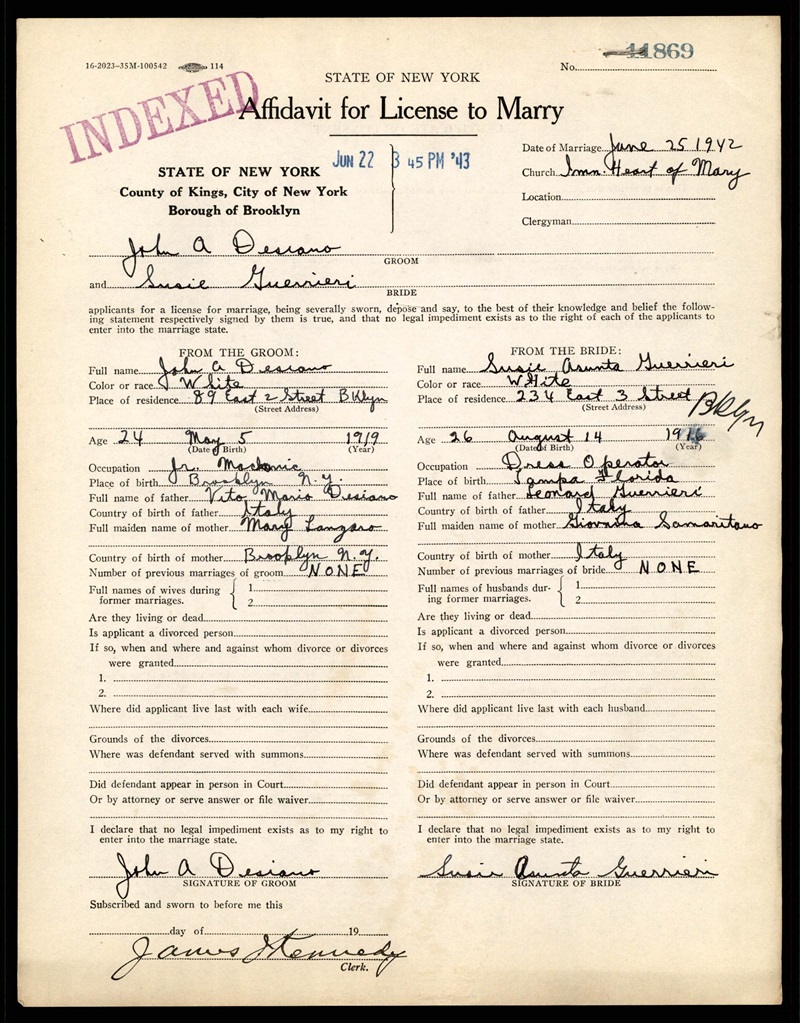 16-2023-35M-100542 114
No. 11869
STATE OF NEW YORK
INDEXED
Affidavit for License to Marry
JUN 22 3 45 PM '43
STATE OF NEW YORK
County of Kings, City of New York
Borough of Brooklyn
Date of Marriage June 25 1942
Church Imm. Heart of Mary
Location
Clergyman
John A Desiano
GROOM
and Susie Guerrieri
BRIDE
applicants for a license for marriage, being severally sworn, depose and say, to the best of their knowledge and belief the follow-
ing statement respectively signed by them is true, and that no legal impediment exists as to the right of each of the applicants to
enter into the marriage state.
FROM THE GROOM:
Full name John A Desiano
Color or race White
Place of residence 89 East 2 Street BKlyn
(Street Address)
Age 24 May 5 1919
(Date of Birth) (Year)
Occupation Jr.
Place of birth Brooklyn N.Y.
Full name of father Vito Mario Desiano
Country of birth of father Italy
Full maiden name of mother Mary Lanzaro
Country of birth of mother Brooplyn N.Y.
Number of previous marriages of groom NONE
Full names of wives during
former marriages.
1
2
Are they living or dead
Is applicant a divorced person
If so, when and where and against whom divorce or divorces
were granted
1.
2.
Where did applicant live last with each wife
Grounds of the divorces
Where was defendant served with summons
Did defendant appear in person in Court
Or by attorney or serve answer or file waiver
I declare that no legal impediment exists as to my right to
enter into the marriage state.
John A Desiano
SIGNATURE OF GROOM
Subscribed and sworn to before me this
day of 19
James J Kennedy
Clerk.
FROM THE BRIDE:
Full name Susie Asunta Guerrieri
Color or race WHite
Place of residence 234 East 3 Street BKlyn
(Street Address)
Age 26 August 14 1916
(Date of Birth) (Year)
Occupation Dress Operator
Place of birth Tampa Florida
Full name of father Leonard Guerrieri
Country of birth of father Italy
Full maiden name of mother Giovanna Samaritano
Country of birth of mother Italy
Number of previous marriages of bride NONE
Full names of husbands dur-
ing former marriages.
1
2
Are they living or dead
Is applicant a divorced person
If so, when and where and against whom divorce or divorces
were granted
1.
2.
Where did applicant live last with each husband
Grounds of the divorces
Where was defendant served with summons
Did defendant appear in person in Court
Or by attorney or serve answer or file waiver
I declare that no legal impediment exists as to my right to
enter into the marriage state.
Susie Asunta Guerrieri
SIGNATURE OF BRIDE